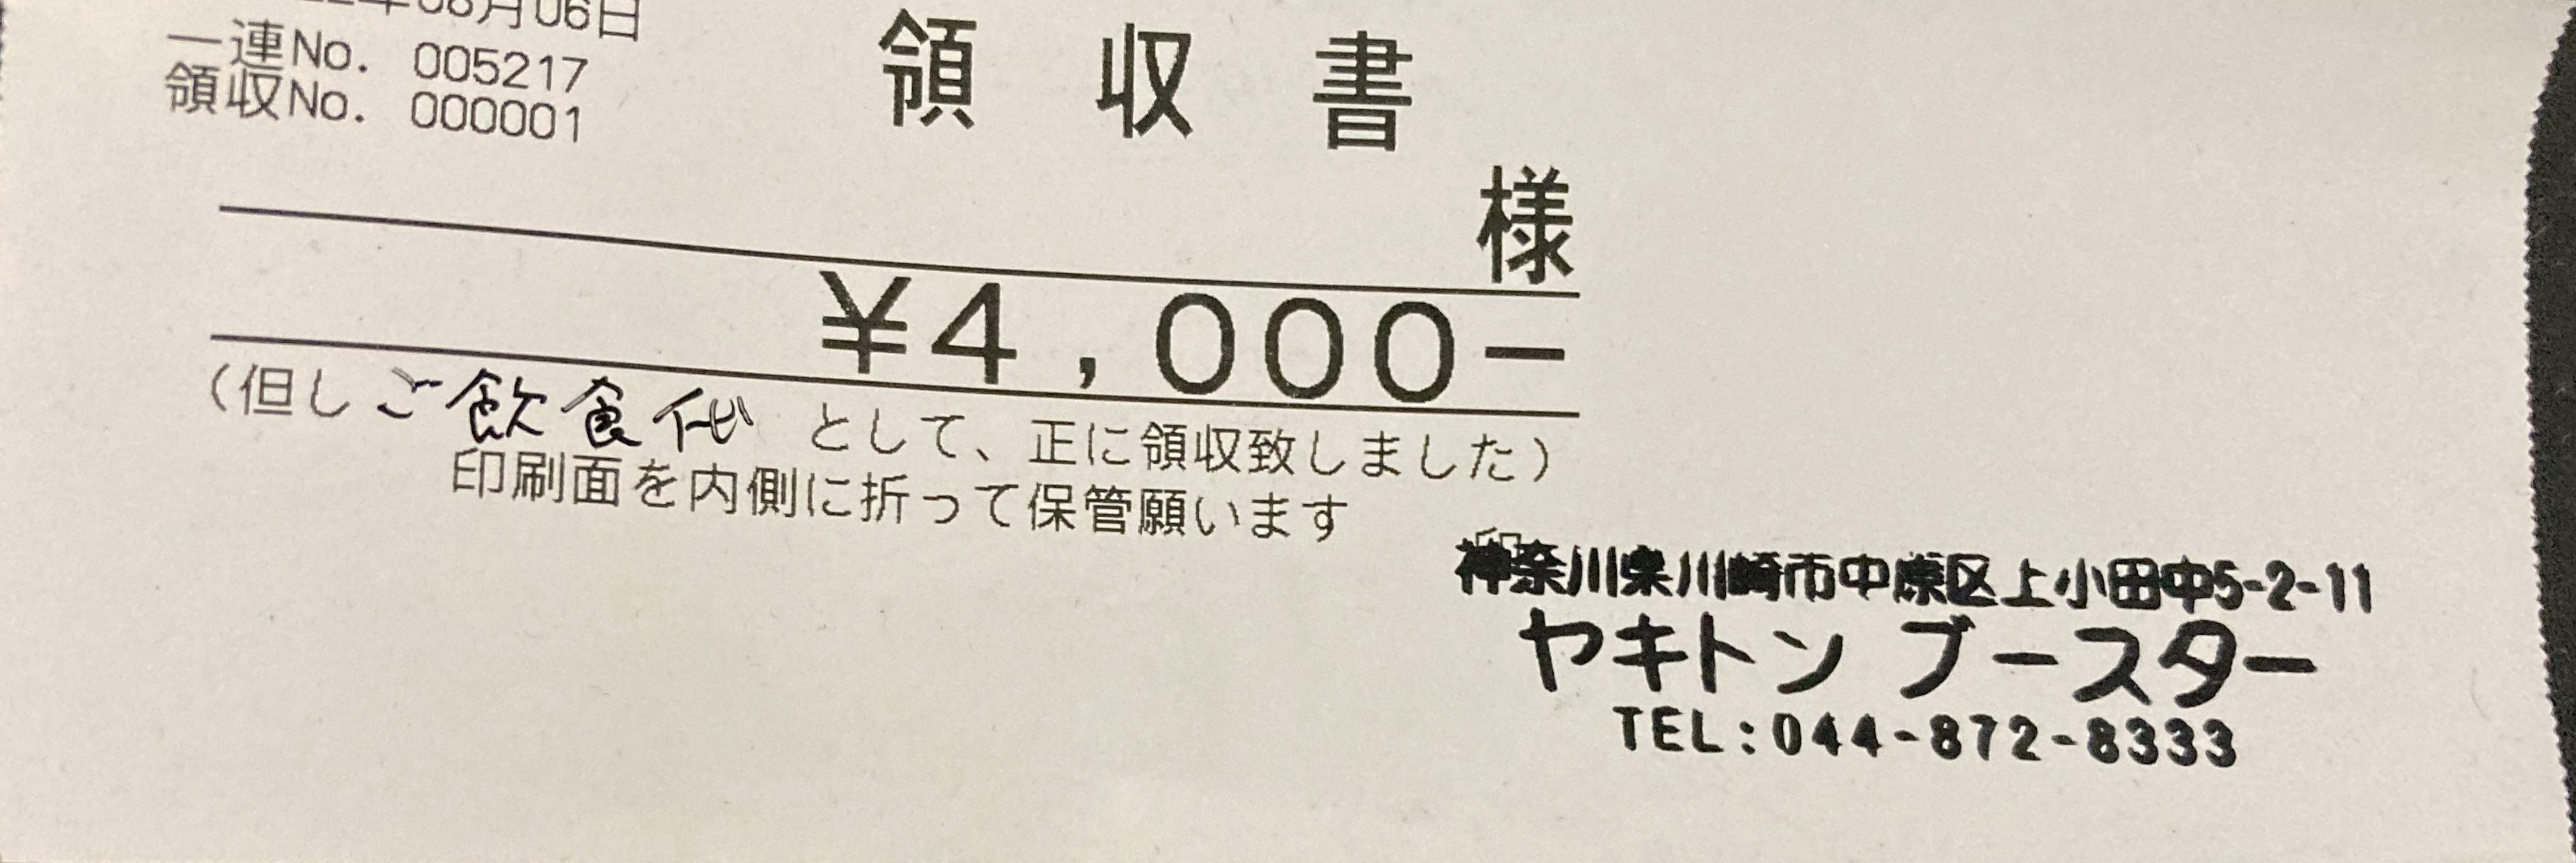 年08月06日
一連No. 005217
領収No. 000001
領 収 書
様
¥4,000−
(但しご飲食代 として、正に領収致しました)
印刷面を内側に折って保管願います
印
神奈川県川崎市中原区上小田中5-2-11
ヤキトン ブースター
TEL:044-872-8333